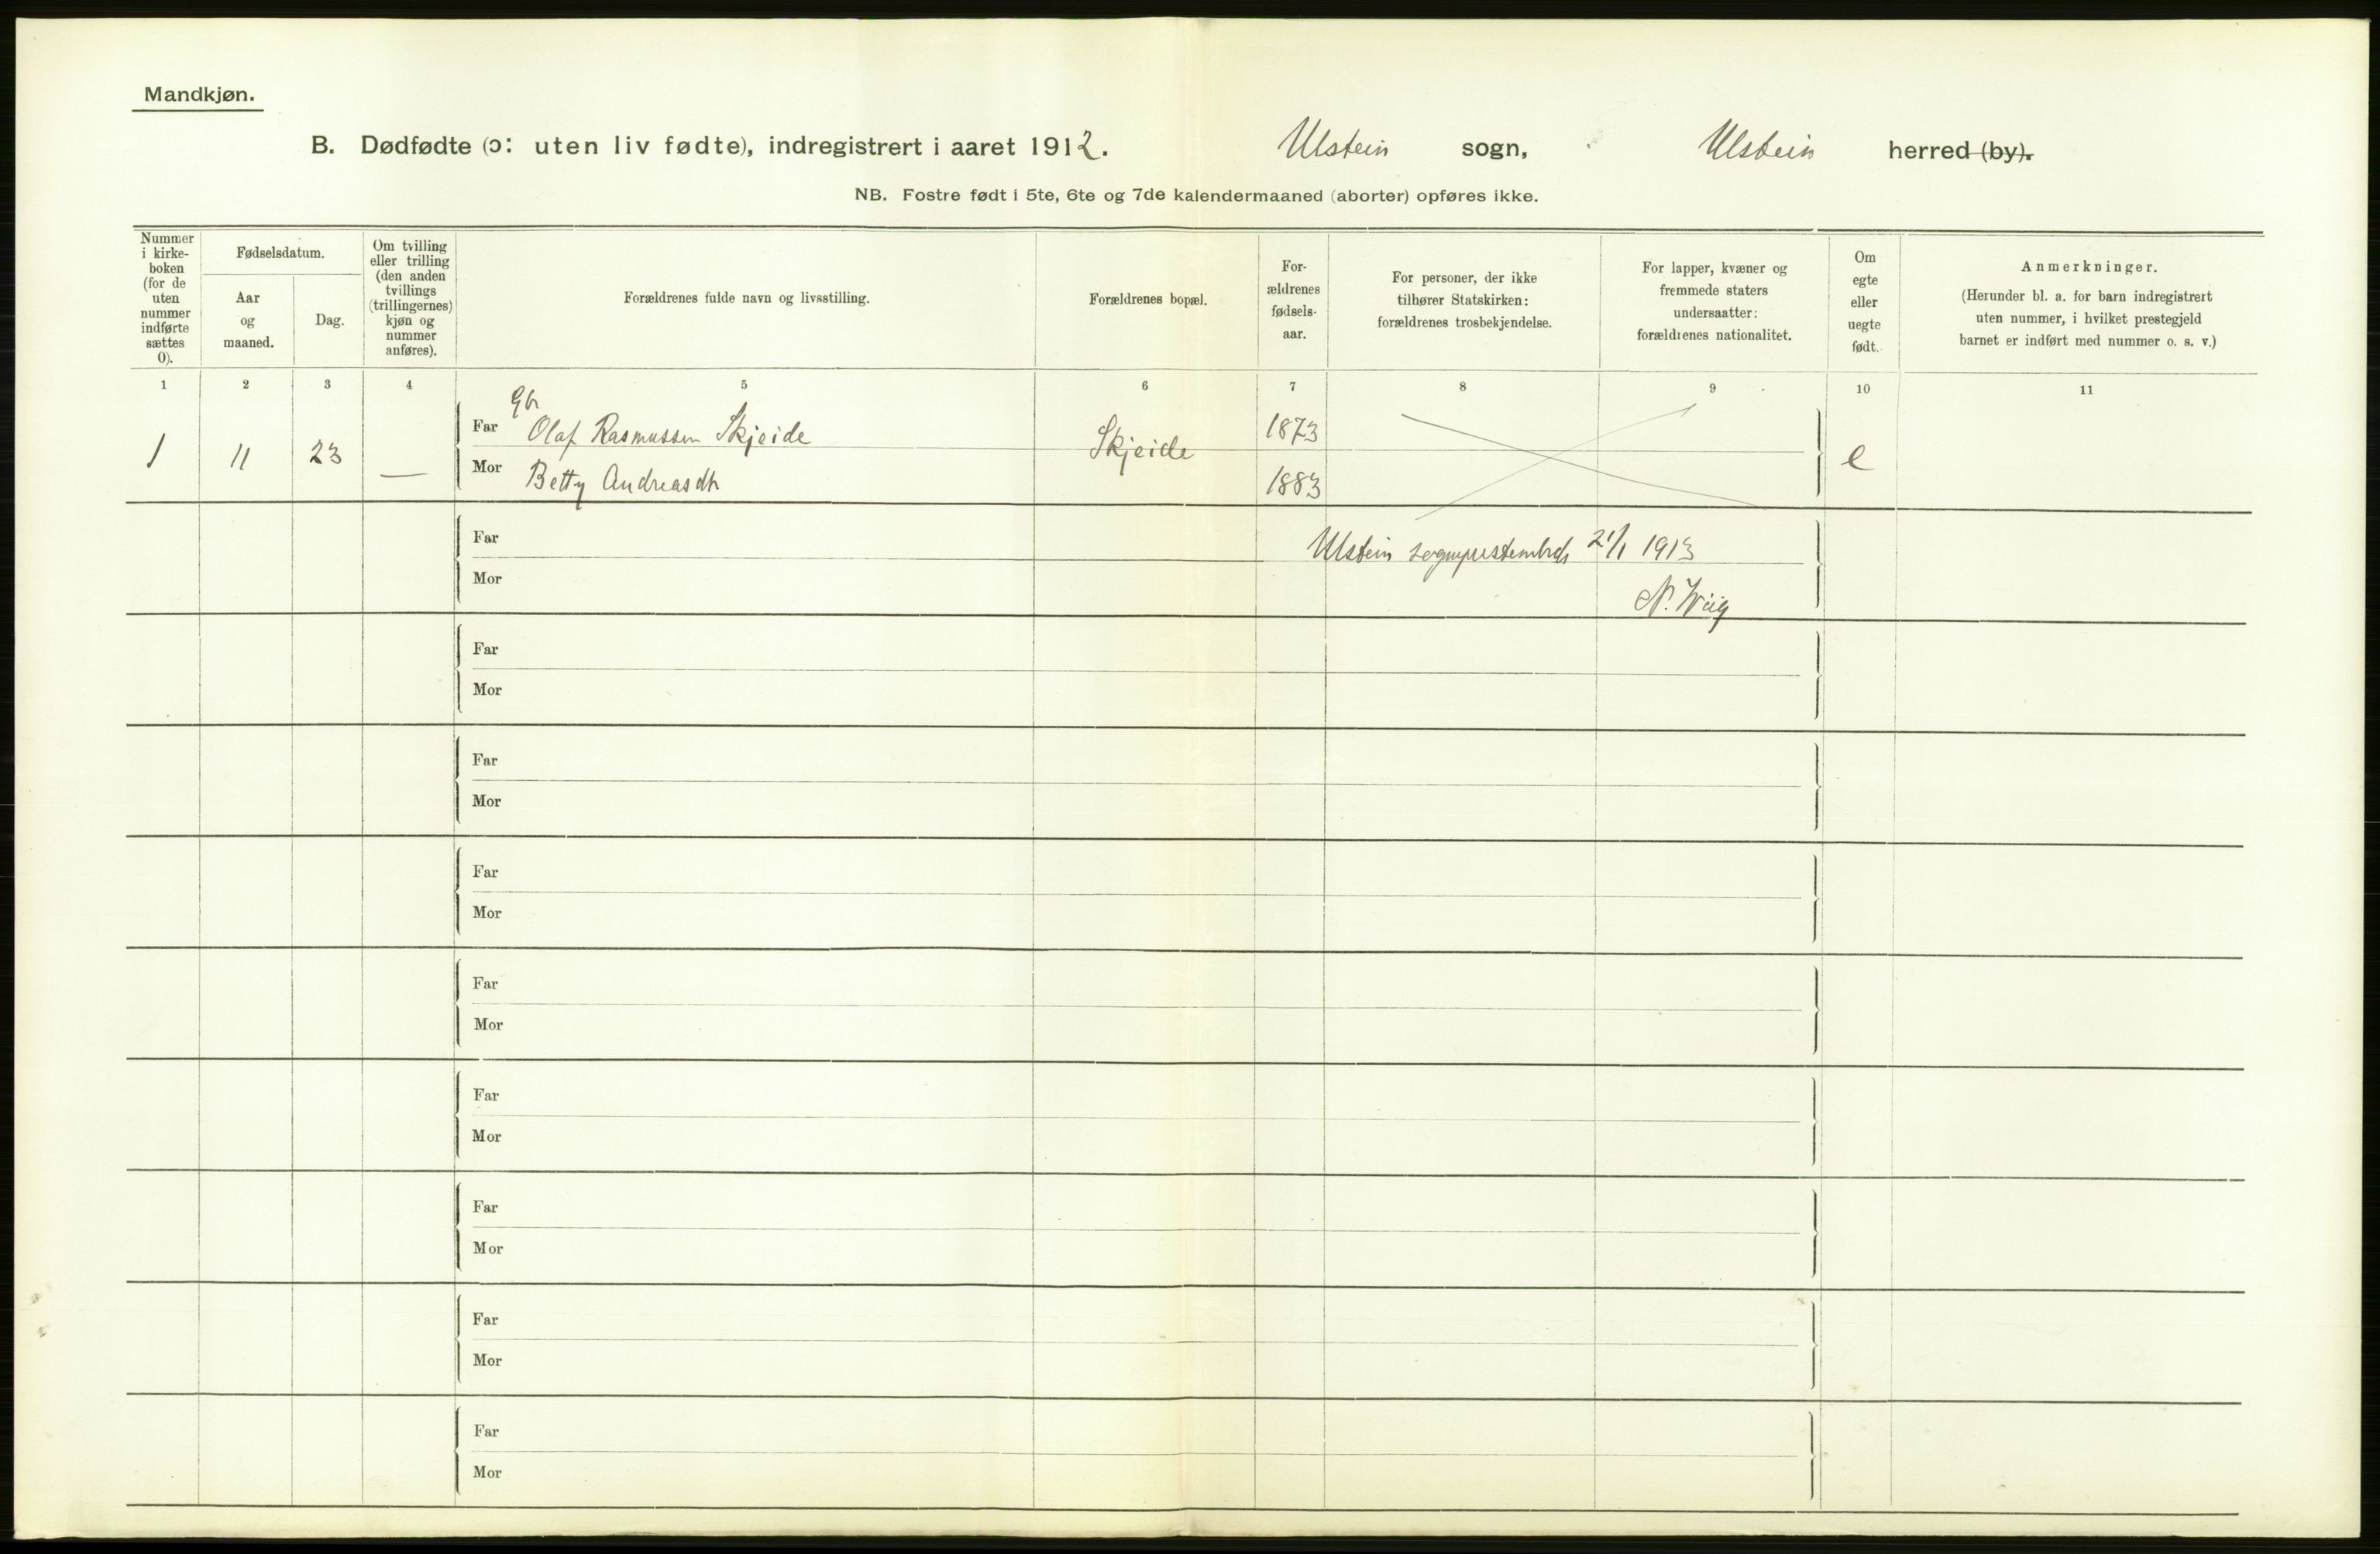 Mandkjøn.
B. Dødfødte (ɔ: uten liv fødte), indregistrert i aaret 1912. Ulstein sogn, Ulstein herred (by).
NB. Fostre født i 5te, 6te og 7de kalendermaaned (aborter) opføres ikke.
Nummer
i kirke-
boken
(for de
uten
nummer
indførte
sættes
0).
Fødselsdatum.
Aar
og
maaned.
Dag.
Om tvilling
eller trilling
(den anden
tvillings
(trillingernes)
kjøn og
nummer
anføres).
Forældrenes fulde navn og livsstilling.
Forældrenes bopæl.
For-
ældrenes
fødsels-
aar.
For personer, der ikke
tilhører Statskirken:
forældrenes trosbekjendelse.
For lapper, kvæner og
fremmede staters
undersaatter:
forældrenes nationalitet.
Om
egte
eller
uegte
født.
Anmerkninger.
(Herunder bl. a. for barn indregistrert
uten nummer, i hvilket prestegjeld
barnet er indført med nummer o. s. v.)
1 2 3 4 5 6 7 8 9 10 11
Gbr
Far Olaf Rasmussen Skjeide 1873
1 11 23 — Skjeide e
Mor Betty Andreasdtr 1883
Far Ulstein 21/1 1913
Mor N. Wiig
Far
Mor
Far
Mor
Far
Mor
Far
Mor
Far
Mor
Far
Mor
Far
Mor
Far
Mor